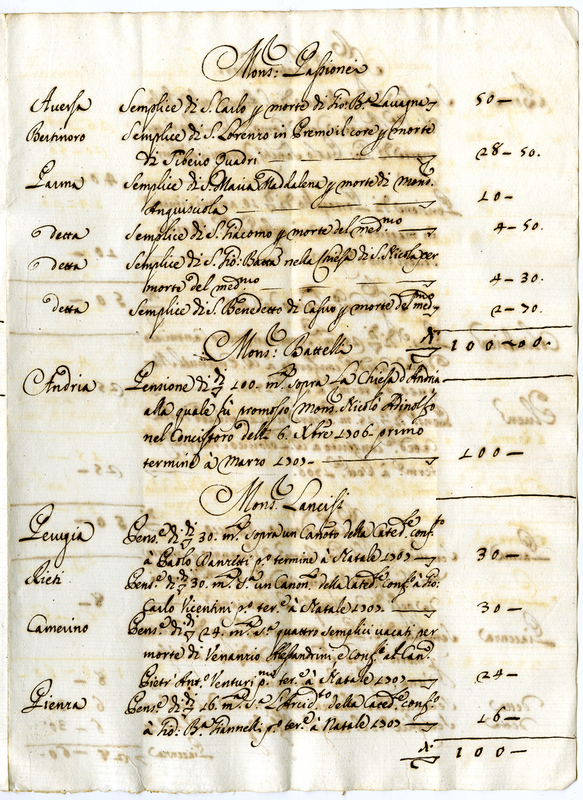 Mons: Passionei
Aversa Semplice di S. Carlo p morte di Gio: Bta Lavagna 50 —
Bertinoro Semplice di S. Lorenzo in p morte
di Quadri 28 – 50.
Parma Semplice di S. Maria Maddalena p morte di Mons.
Anguisciola 10 –
detta Semplice di S. Giacomo p morte del medmo 4 – 50.
detta Semplice di S. Gio: Batta nella Chiesa di S. Nicola per
morte del medmo 4 – 30.
detta Semplice di S. Benedetto di p morte del med. 2 – 70.
100 – 00.
Mons: Battelli
Andria Pensione di 100. mta sopra La Chiesa d'Andria
alla quale fù promosso Mons. Nicolò Adinolfo
nel Concistoro delli 6. Xbre 1706. primo
termine à Marzo 1707 — 100 —
Mons: Lancisi
Perugia Pens.e di 30. mta sopra un Canto della Cated.le conf.to
à Paolo p.o termine à Natale 1707 — 30 —
Rieti Pens.e di 30. mta s.a un Canon. della Cated.le conf.o à Gio:
Carlo Vicentini p.o ter.e à Natale 1707. 30 —
Camerino Pens.e di 24. mta s.a quattro semplici vacati per
morte di Venanzio Alessandrini, e conf.i al Can.
Pietr' Ant.o Venturi p.mo ter.e à Natale 1707 — 24 —
Pienza Pens.e di 16. mta s.a l'Arcid.to della Cated.le conf.o
à Gio: Bta Giannelli p.o ter.e à Natale 1707 — 16 —
100 —